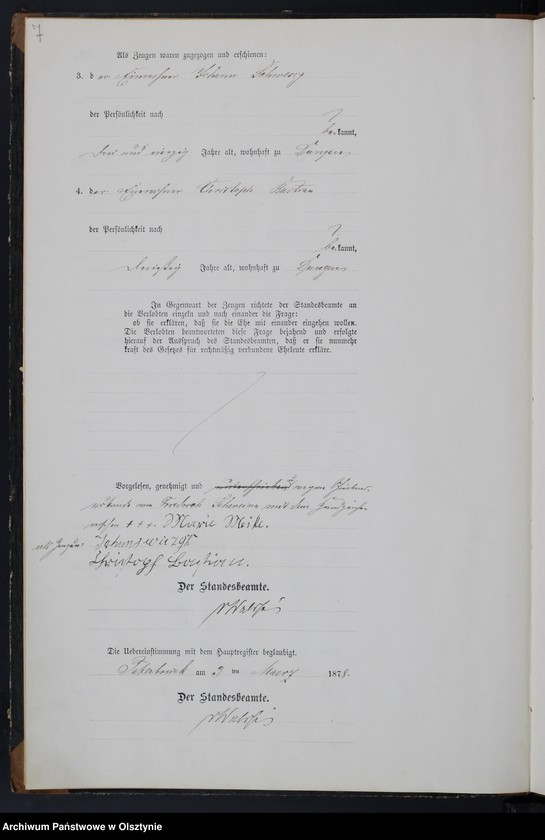 7
Als Zeugen waren zugezogen und erschienen:
3. der Einwohner Johann
der Persönlichkeit nach
bekannt,
drei und vierzig Jahre alt, wohnhaft zu
4. der Einwohner Christoph Bastian
der Persönlichkeit nach
bekannt,
dreißig Jahre alt, wohnhaft zu
In Gegenwart der Zeugen richtete der Standesbeamte an
die Verlobten einzeln und nach einander die Frage:
ob sie erklären, daß sie die Ehe mit einander eingehen wollen.
Die Verlobten beantworteten diese Frage bejahend und erfolgte
hierauf der Ausspruch des Standesbeamten, daß er sie nunmehr
kraft des Gesetzes für rechtmäßig verbundene Eheleute erkläre.
Vorgelesen, genehmigt und unterschrieben wegen
von Friedrich mit dem Handzeichen
+++. Marie Meike.
als Zeugen:
Christopf Bastian.
Der Standesbeamte.
Die Uebereinstimmung mit dem Hauptregister beglaubigt.
am 3 ten Maerz 1878.
Der Standesbeamte.
Archiwum Państwowe w Olsztynie